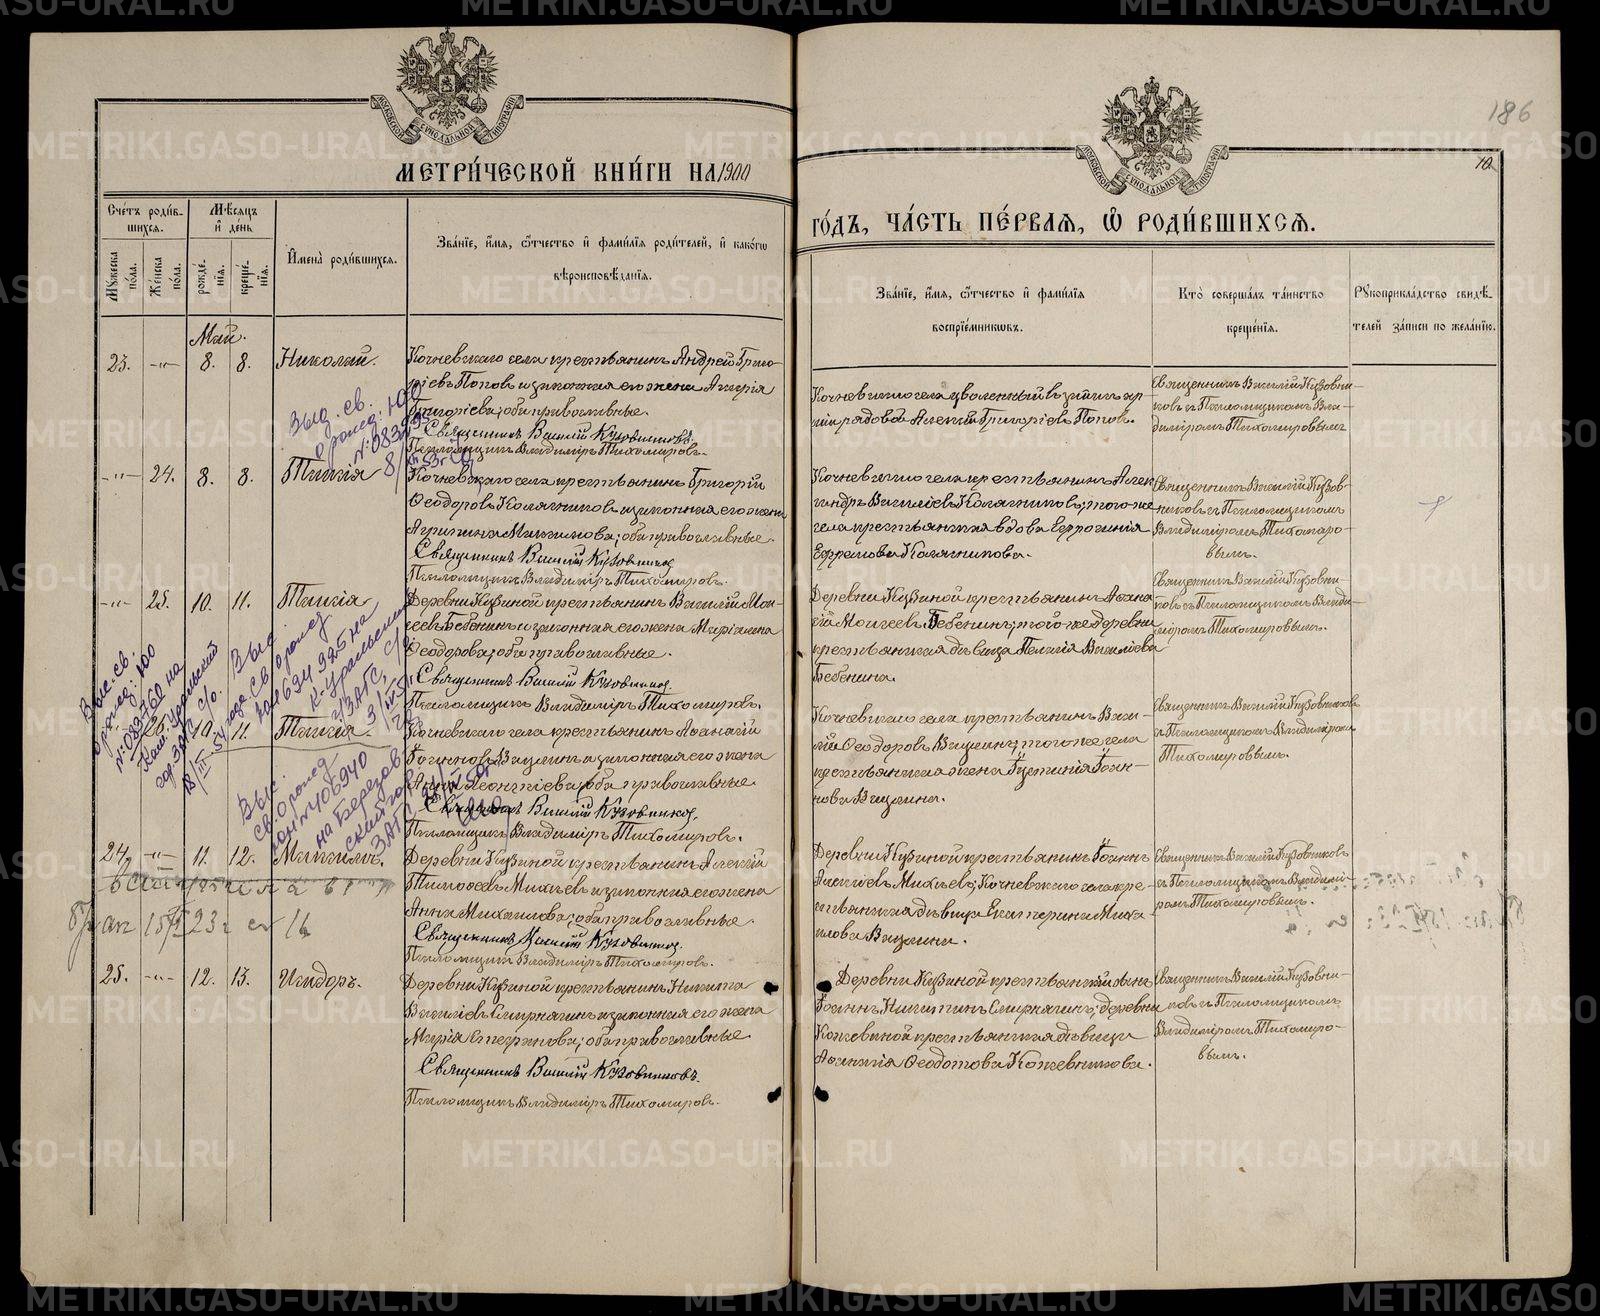 МЕТРИ́ЧЕСКОЙ КНИ́ГИ НА 1900
Сче́тъ роди́в-
шихсѧ.
Мѣ́сѧцъ
и҆ де́нь
Мꙋ́жеска
по́ла.
Же́нска
по́ла.
рожде́-
нїѧ.
креще́-
нїѧ.
И҆мена̀ роди́вшихсѧ.
Зва́нїе, и҆́мѧ, ѻ҆́тчество и҆ фами́лїѧ роди́телей, и҆ како́гѡ
вѣроисповѣ́данїѧ.
Май.
23. -"- 8. 8. Николай.
Кочневскаго села крестьянинъ Андрей Григо-
рiевъ Поповъ и законная его жена Марiя
Григорiева; оба православные.
Священникъ Василiй Кузовниковъ.
Псаломщикъ Владимiръ Тихомировъ.
-"- 24. 8. 8. Таисiя
Кочневскаго села крестьянинъ Григорiй
Ѳеодоровъ Колясниковъ и законная его жена
Агрипина Максимова; оба православные.
Священникъ Василiй Кузовниковъ
Псаломщикъ Владимiръ Тихомировъ.
-"- 25. 10. 11. Таисiя
Деревни Кузиной крестьянинъ Василiй Мои-
сеевъ Бебенинъ и законная его жена Марiамна
Ѳеодорова; оба православные.
Священникъ Василiй Кузовниковъ.
Псаломщикъ Владимiръ Тихомировъ.
26. 10. 11. Таисiя.
Кочневскаго села крестьянинъ Аѳанасiй
законная его жена
Анна Леонтiева; оба православные
Священникъ Василiй Кузовниковъ.
Псаломщикъ Владимiръ Тихомировъ.
24. -"- 11. 12. Михаилъ.
Деревни Кузиной крестьянинъ Алексiй
Тимоѳеевъ Михѣевъ и законная его жена
Анна Михайлова; оба православные.
Священникъ Василiй Кузовниковъ.
Псаломщикъ Владимiръ Тихомировъ.
25. -"- 12. 13. Исидоръ.
Деревни Кузиной крестьянинъ Никита
Василiевъ Смирнягинъ и законная его жена
Марiя; оба православные.
Священникъ Василiй Кузовниковъ.
Псаломщикъ Владимiръ Тихомировъ.
Выд. св.
о рожд. ЮО
№ 083995
Выс. св.
о рожд. ЮО
№ 083760 на
Кам. Уральский
гор. ЗАГС с/о.
18/III-54 года
Выс.
св. о рожд
№ 634925 на
К-Уральский
г/ЗАГС, с/о
Выс.
св. о рожд
№ 406940
на Березов
ский гор
ЗАГС
вступила в
брак 15/II 23г
186
10
ГО́ДЪ, ЧА́СТЬ ПЕ́РВАѦ, Ѡ҆ РОДИ́ВШИХСѦ.
Зва́нїе, и҆́мѧ, ѻ҆́тчество и҆ фами́лїѧ
воспрїе́мникѡвъ.
Кто̀ соверша́лъ та́инство
креще́нїѧ.
Рꙋкоприкла́дство свидѣ́-
телей за́писи по жела́нїю.
Кочневскаго села уволенный в запасъ ар-
мiи рядовой Алексiй Григорiевъ Поповъ.
Священникъ Василiй Кузовни-
ковъ с Псаломщикомъ Вла-
димiромъ Тихомировымъ
Кочневскаго села крестьянинъ Алек-
сандръ Василiевъ Колясниковъ; того же
села крестьянская вдова Евфросинiя
Ефремова Колясникова.
Священникъ Василiй Кузов-
никовъ с Псаломщикомъ
Владимiромъ Тихомиро-
вымъ.
Деревни Кузиной крестьянинъ Аѳана-
сiй Моисеевъ Бебенинъ; того же деревни
крестьянская дѣвица Пелагiя Василiева
Бебенина.
Священникъ Василiй Кузовни-
ковъ с Псаломщикомъ Влади-
мiромъ Тихомировымъ.
Кочневскаго села крестьянинъ Васи-
лiй Ѳеодоровъ; того же села
крестьянская жена Iустинiя Iоан-
нова
Священникъ Василiй Кузовниковъ
с Псаломщикомъ Владимiромъ
Тихомировымъ.
Деревни Кузиной крестьянинъ Iоаннъ
Алексiевъ Михѣевъ; Кочневскаго села кре-
стьянская дѣвица Екатерина Миха-
илова
Священникъ Василiй Кузовниковъ
с Псаломщикомъ Владимi-
ромъ Тихомировымъ.
Деревни Кузиной крестьянскiй сынъ
Iоаннъ Никитинъ Смирнягинъ; деревни
Кожевиной крестьянская дѣвица
Аѳанасiя Ѳеодотова Кожевникова.
Священникъ Василiй Кузовни-
ковъ с Псаломщикомъ
Владимiромъ Тихомиро-
вымъ.
METRIKI.GASO-URAL.RU